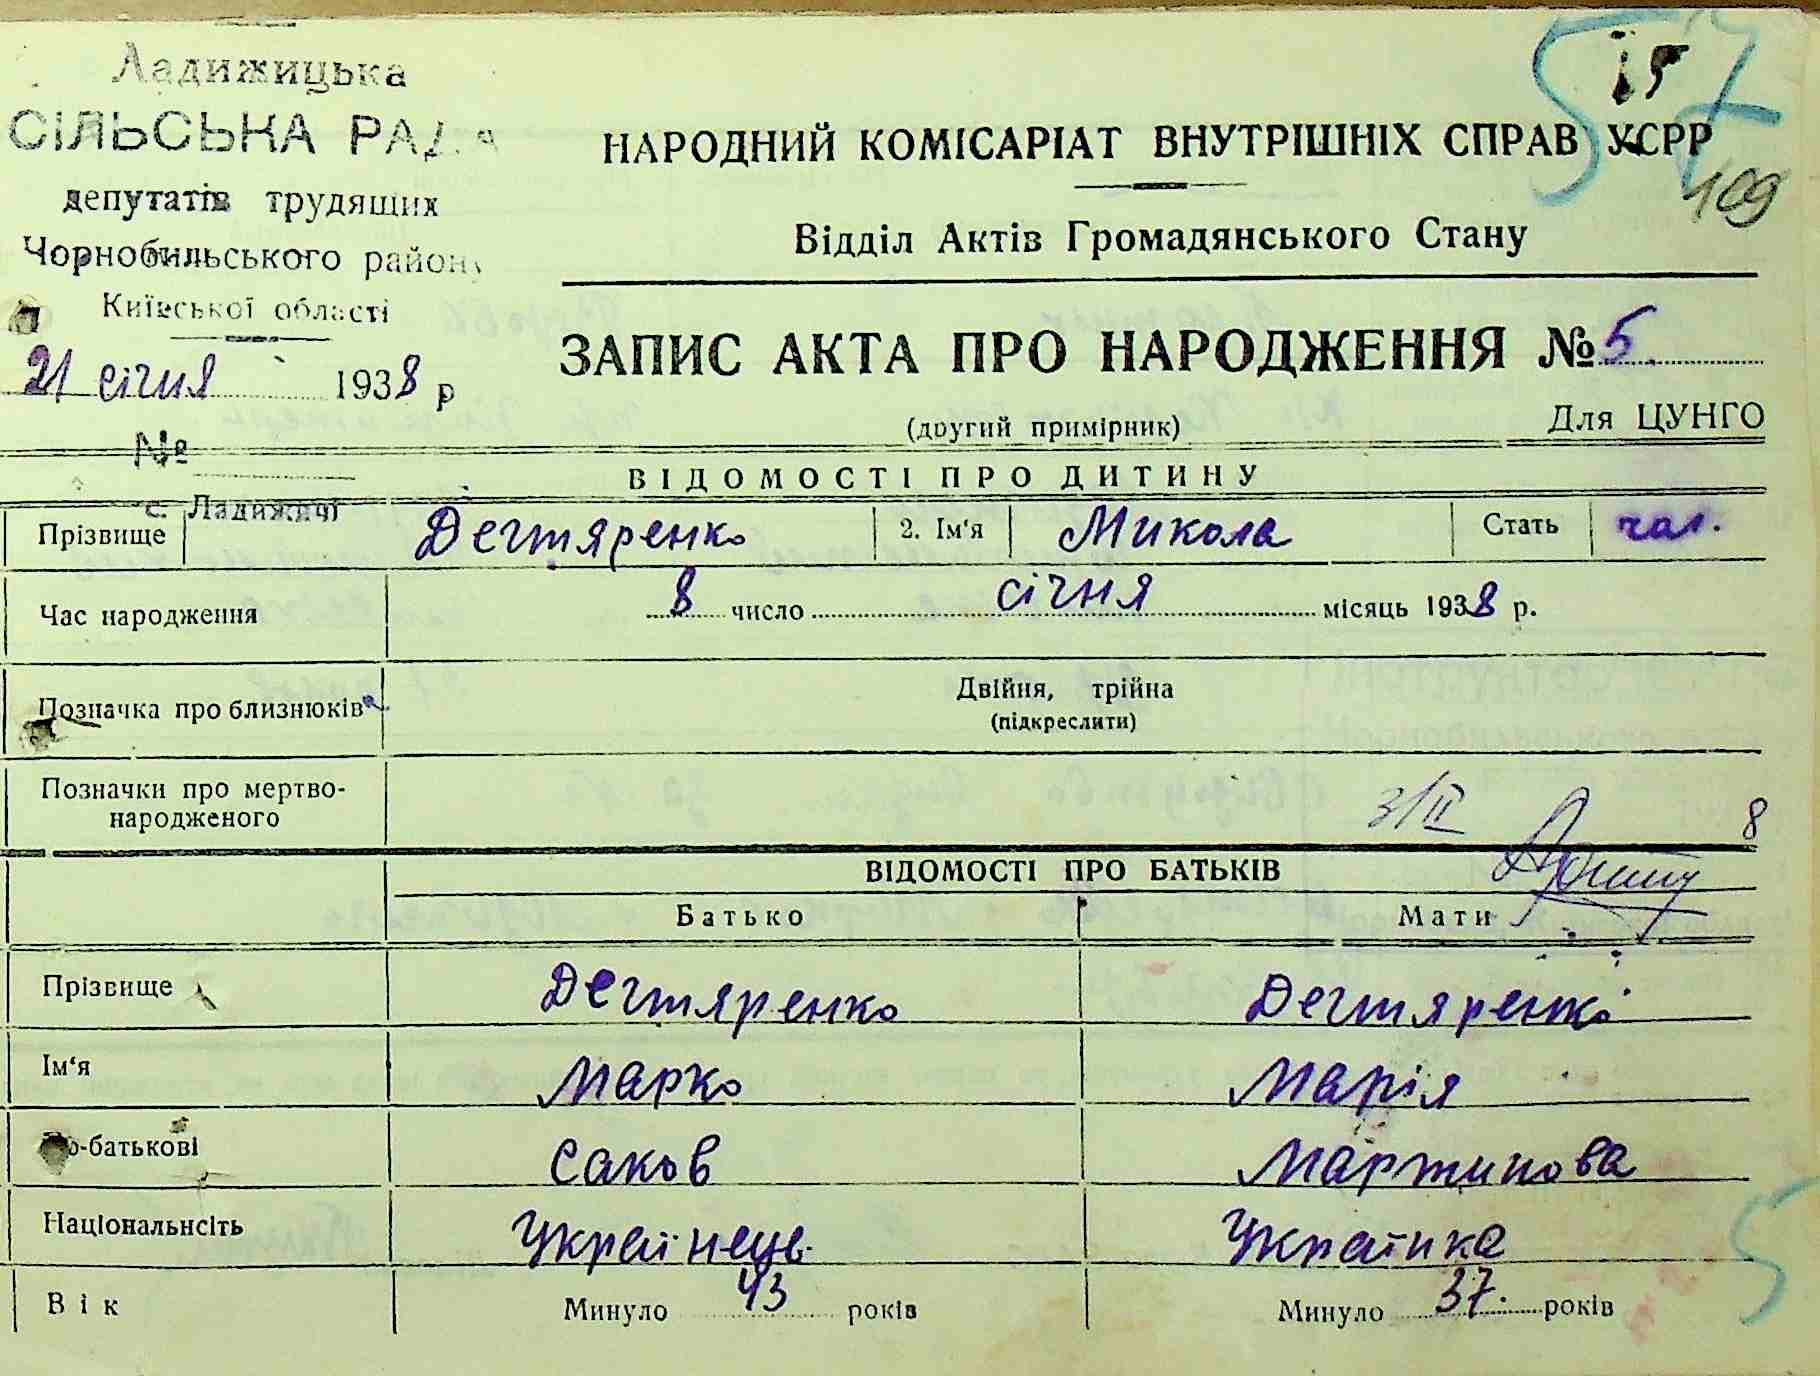 Ладижицька
СІЛЬСЬКА РАДА
депутатів трудящих
Чорнобильського району
Київської області
21 січня 1938 р
№
с. Ладижичі
57
15
109
НАРОДНИЙ КОМІСАРІАТ ВНУТРІШНІХ СПРАВ УСРР
Відділ Актів Громадянського Стану
ЗАПИС АКТА ПРО НАРОДЖЕННЯ № 5.
(другий примірник)
Для ЦУНГО
ВІДОМОСТІ ПРО ДИТИНУ
Прізвище Дегтяренко 2. Ім'я Микола Стать чол.
Час народження 8 число січня місяць 1938 р.
Позначка про близнюків Двійня, трійна
(підкреслити)
Позначки про мертво-
народженого
3/II 8
ВІДОМОСТІ ПРО БАТЬКІВ
Батько Мати
Прізвище Дегтяренко Дегтяренко
Ім'я Марко Марія
По-батькові Саков Мартинова
Національнсіть Українець Українка
Вік Минуло 43 років Минуло 37. років
5